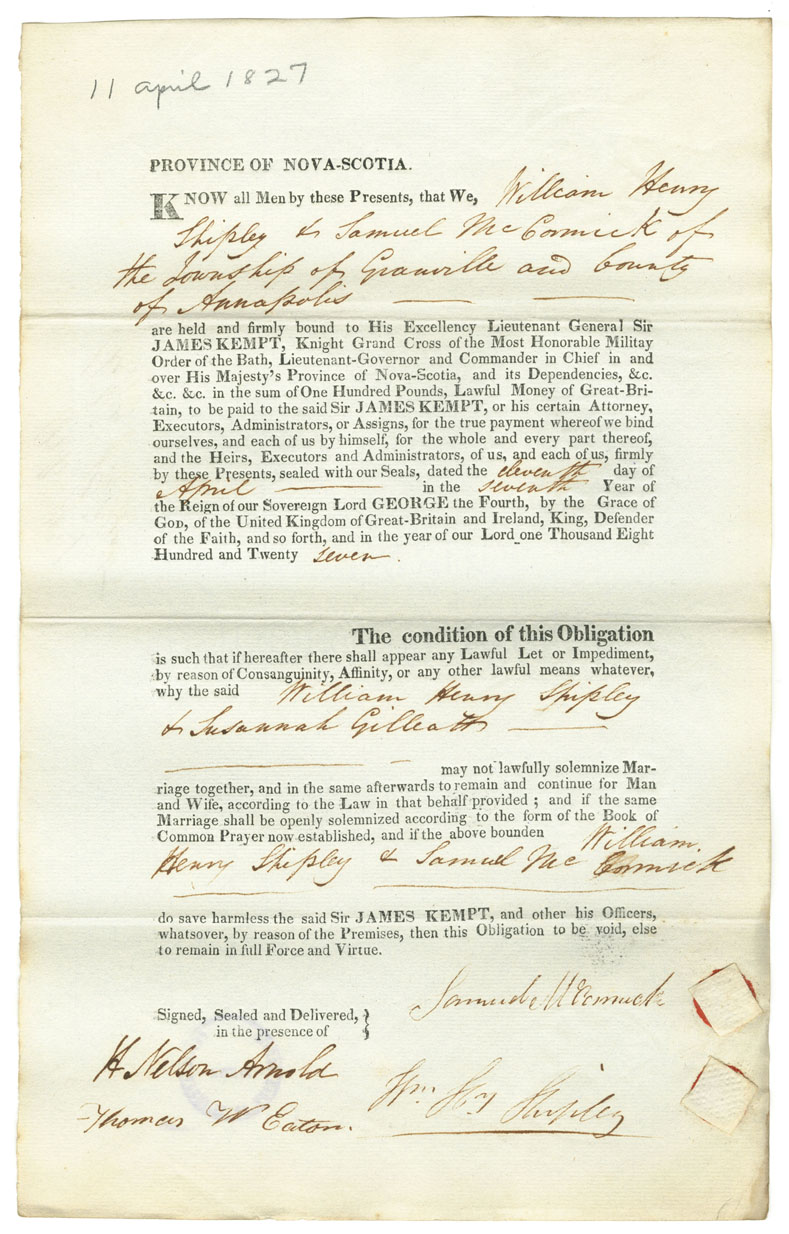 11 april 1827
PROVINCE OF NOVA-SCOTIA.
KNOW all Men by these Presents, that We, William Henry
Shipley & Samuel McCormick of
the Township of Granville and County
of Annapolis
are held and firmly bound to His Excellency Lieutenant General Sir
JAMES KEMPT, Knight Grand Cross of the Most Honorable Militay
Order of the Bath, Lieutenant-Governor and Commander in Chief in and
over His Majesty's Province of Nova-Scotia, and its Dependencies, &c.
&c. &c. in the sum of One Hundred Pounds, Lawful Money of Great-Bri-
tain, to be paid to the said Sir JAMES KEMPT, or his certain Attorney,
Executors, Administrators, or Assigns, for the true payment whereof we bind
ourselves, and each of us by himself, for the whole and every part thereof,
and the Heirs, Executors and Administrators, of us, and each of us, firmly
by these Presents, sealed with our Seals, dated the eleventh day of
April in the seventh Year of
the Reign of our Sovereign Lord GEORGE the Fourth, by the Grace of
GOD, of the United Kingdom of Great-Britain and Ireland, King, Defender
of the Faith, and so forth, and in the year of our Lord one Thousand Eight
Hundred and Twenty seven.
The condition of this Obligation
is such that if hereafter there shall appear any Lawful Let or Impediment,
by reason of Consanguinity, Affinity, or any other lawful means whatever,
why the said William Henry Shipley
& Susannah Gilleatt
may not lawfully solemnize Mar-
riage together, and in the same afterwards to remain and continue for Man
and Wife, according to the Law in that behalf provided ; and if the same
Marriage shall be openly solemnized according to the form of the Book of
Common Prayer now established, and if the above bounden William
Henry Shipley & Samuel McCormick
do save harmless the said Sir JAMES KEMPT, and other his Officers,
whatsover, by reason of the Premises, then this Obligation to be void, else
to remain in full Force and Virtue.
Samuel McCormick
Signed, Sealed and Delivered, }
in the presence of
H Nelson Arnold
Wm Hy Shipley
Thomas W Eaton.